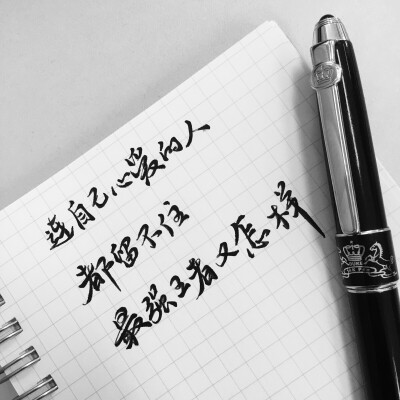 连自己心爱的人
都留不住
最强王者又怎样